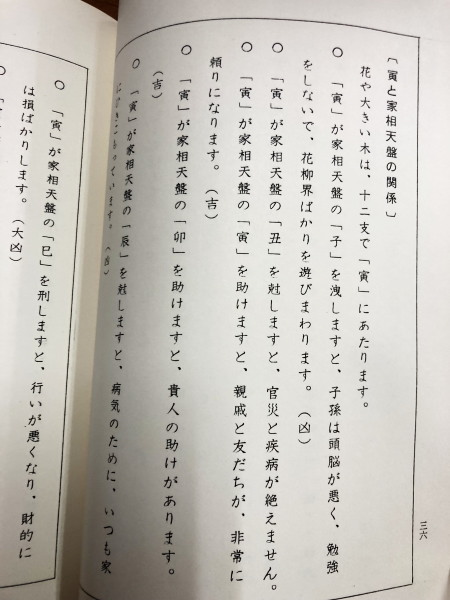 〔寅と家相天盤の関係〕
花や大きい木は、十二支で「寅」にあたります。
○ 「寅」が家相天盤の「子」を洩しますと、子孫は頭脳が悪く、勉強
をしないで、花柳界ばかりを遊びまわります。（凶）
○ 「寅」が家相天盤の「丑」を尅しますと、官災と疾病が絶えません。
○ 「寅」が家相天盤の「寅」を助けますと、親戚と友だちが、非常に
頼りになります。（吉）
○ 「寅」が家相天盤の「卯」を助けますと、貴人の助けがあります。
（吉）
○ 「寅」が家相天盤の「辰」を尅しますと、病気のために、いつも家
っています。（凶）
三六
○ 「寅」が家相天盤の「巳」を刑しますと、行いが悪くなり、財的に
は損ばかりします。（大凶）
○